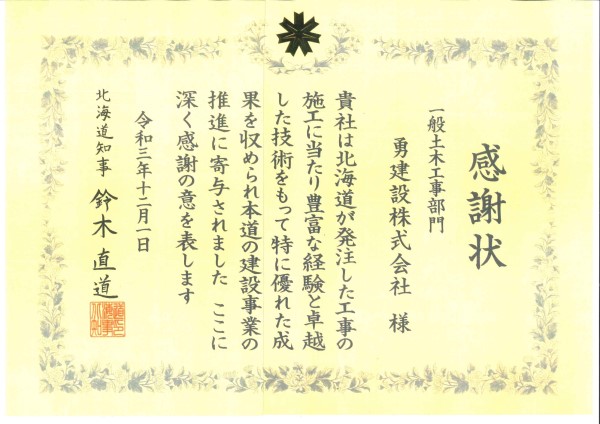 感謝状
一般土木工事部門
勇建設株式会社 様
貴社は北海道が発注した工事の
施工に当たり豊富な経験と卓越
した技術をもって特に優れた成
果を収められ本道の建設事業の
推進に寄与されました ここに
深く感謝の意を表します
令和三年十二月一日
北海道知事 鈴木直道